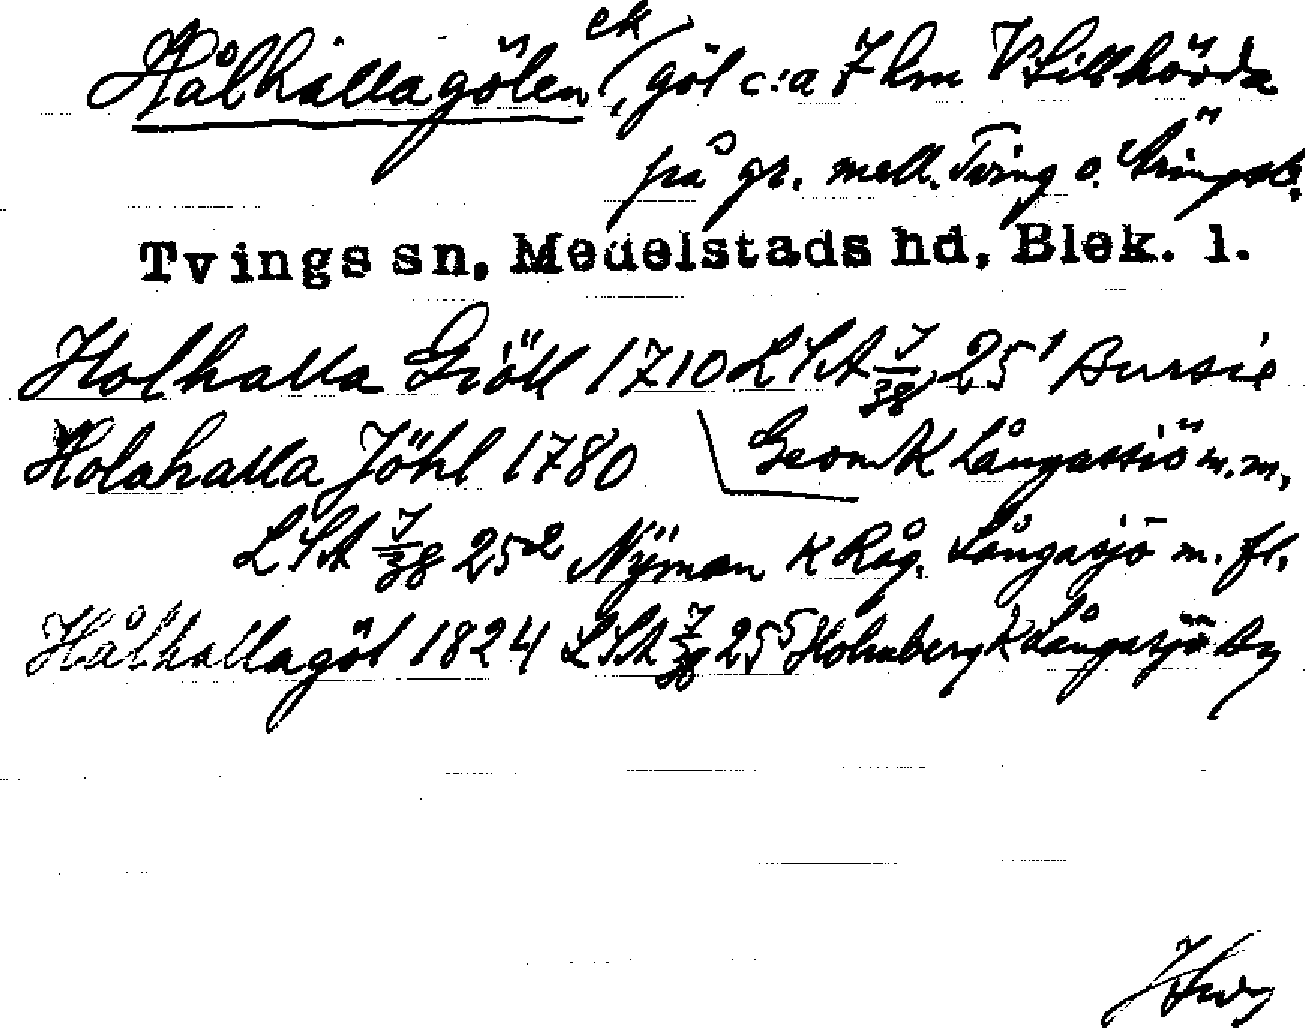 Hålhallagölen ek (, göl c:a 7 km V Sillhövda
på gr. mell. Tving o.
Tvings sn, Medelstads hd, Blek. l.
Holhalla Giöll 1710 LSA 7/38 25¹ Bursie
Holahalla Jöhl 1780 Geom K Långassiö m.m,
LSA 7/38 25² Nyman K Råg. Långasjö m. fl.
Hålhallagöl 1824 LSA 7/38 25⁵ Holmberg K Långasjö by